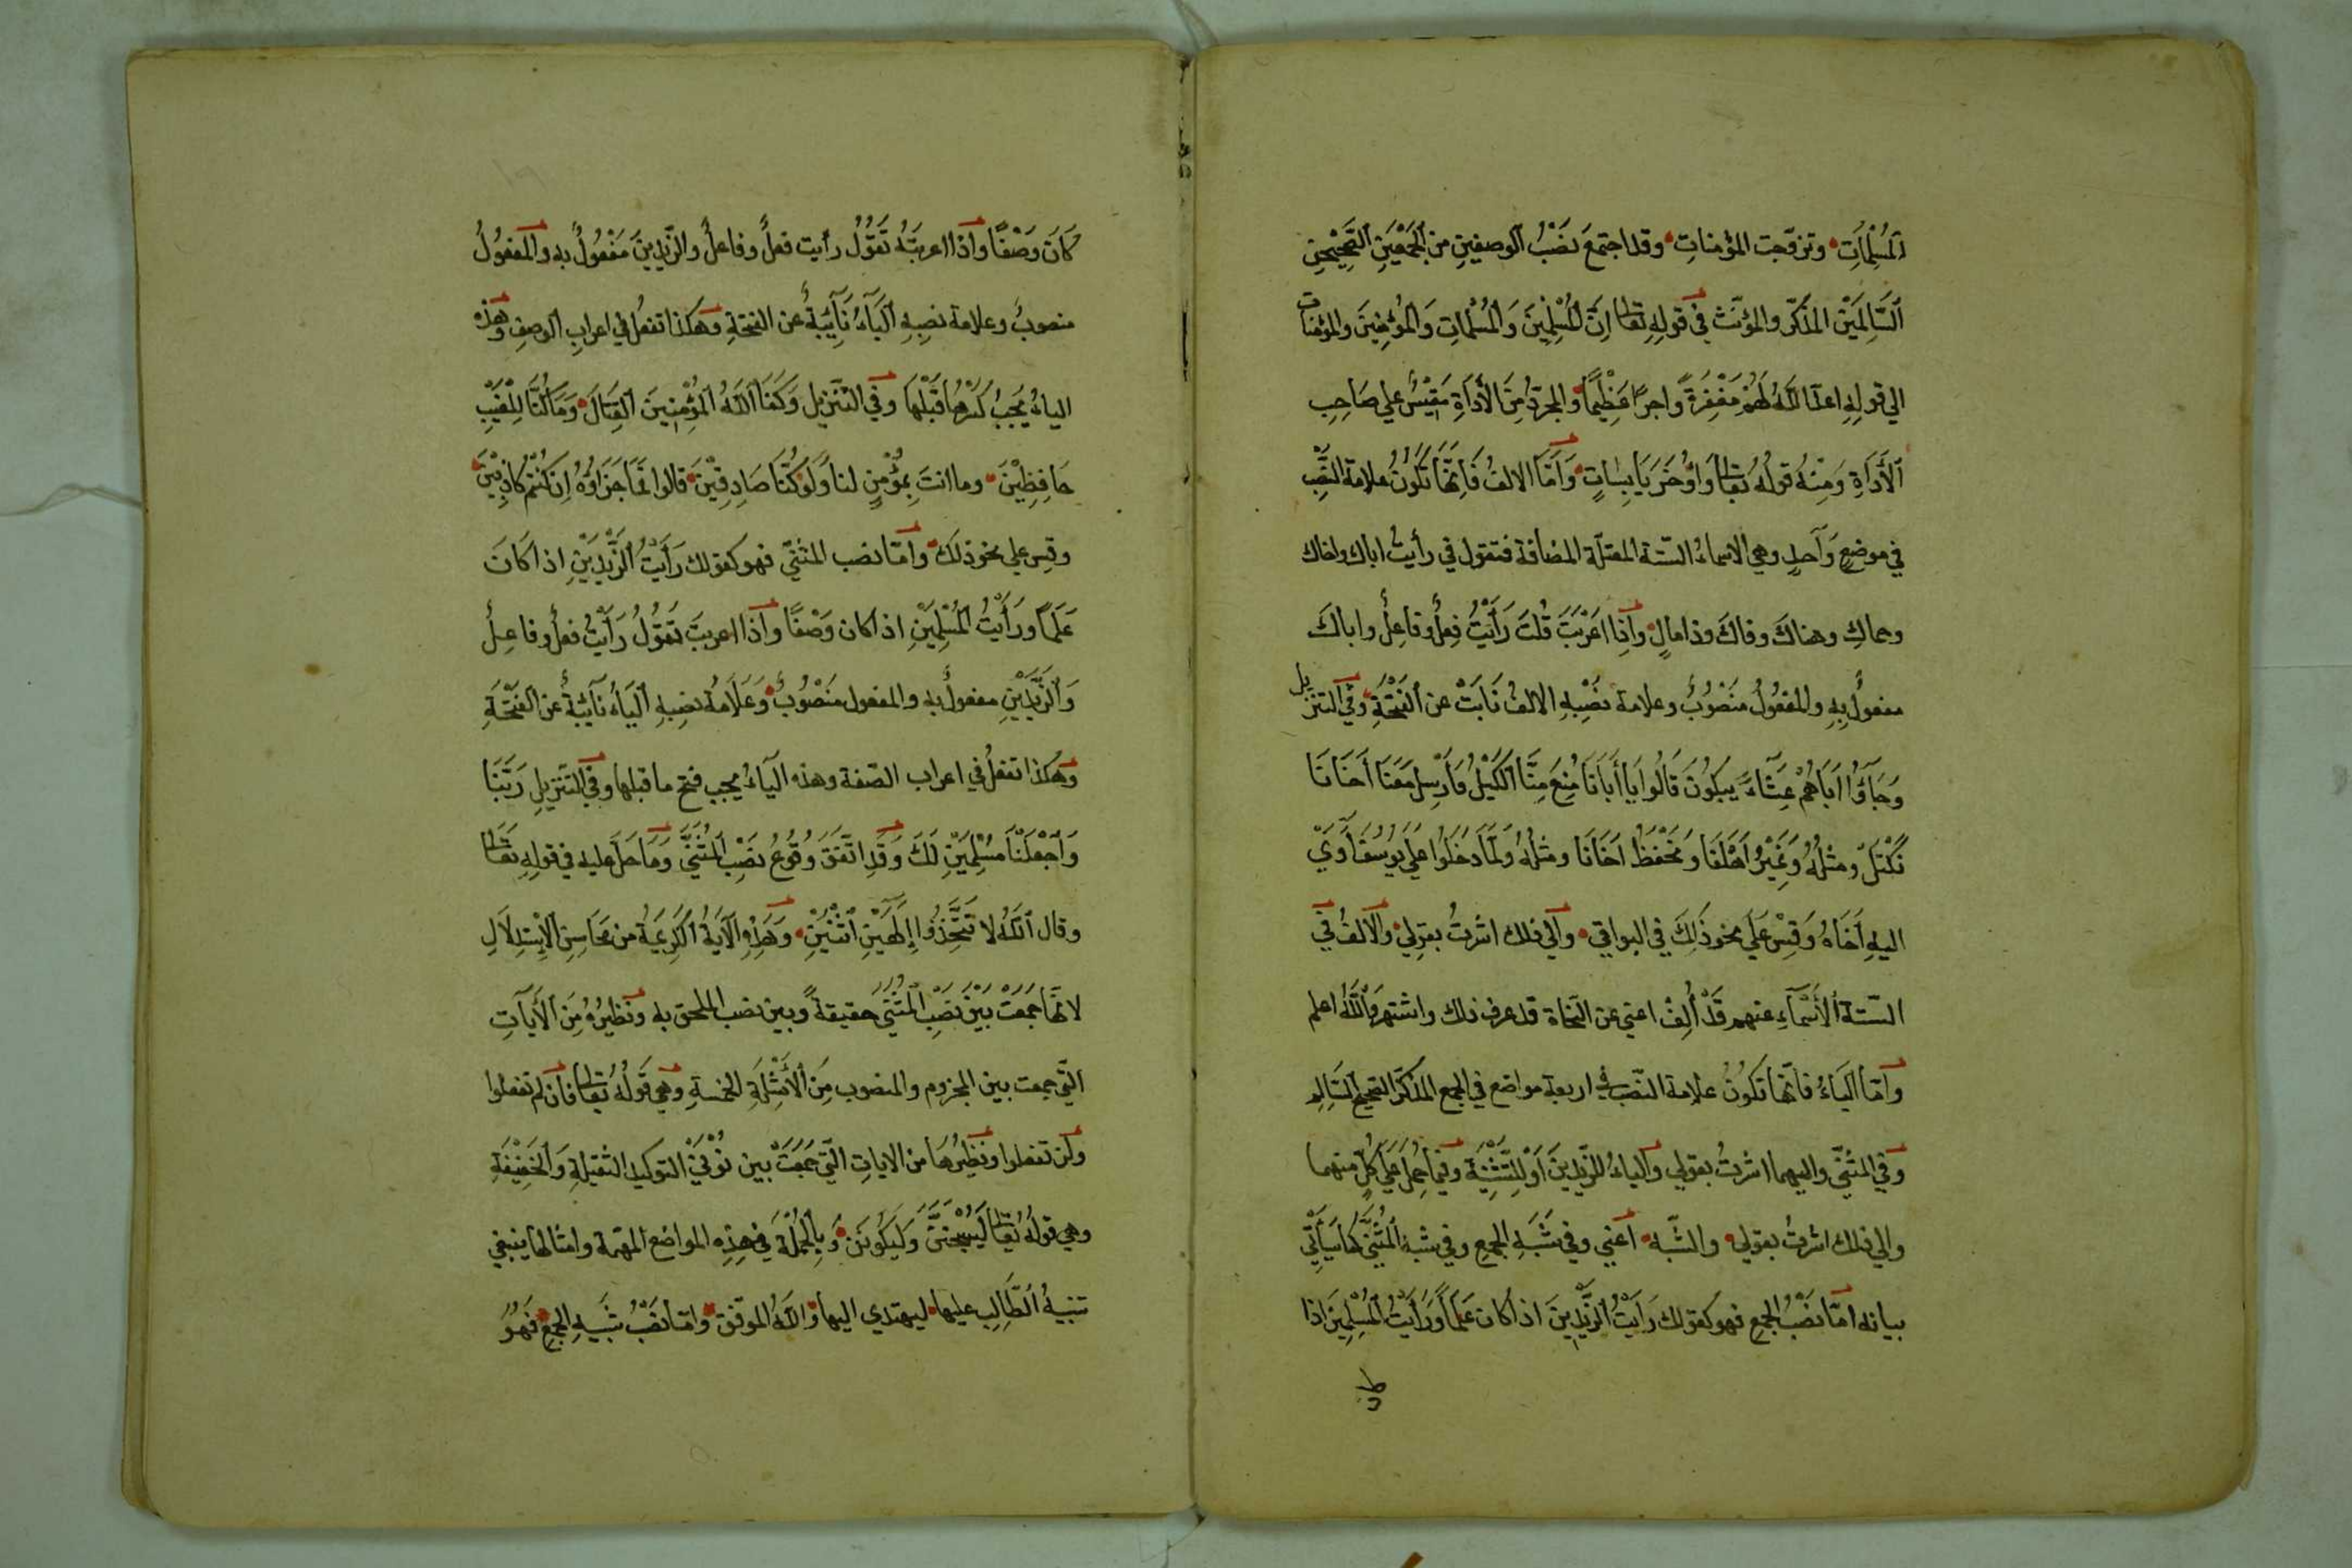 المُسْلِمَاتِ وتزوّجت المؤمناتِ وقد اجتمعَ نصْبُ الوصفينِ من الجَمْعَيْنِ الصَّحِيْحَيْنِ
السَّالِمَيْنِ المذكّر والمؤنّث في قولِهِ تعالى اِنَّ المُسْلِمِيْنَ وَالمُسْلِمَاتِ وَالمُؤْمِنِيْنَ والمؤمنات
الي قولِهِ اعدّ اللَّهُ لَهُمْ مَغْفِرَةً واجرًا عَظِيْمًا والمجرّدُ مِنَ الأدَاةِ مَقِيْسٌ علي صَاحِبِ
الأَدَاةِ وَمِنْهُ قولُهُ تعالى وَاُخَرَ يَابِسَاتٍ وَاَمَّا الالفُ فَاِنَّهَا تَكُونُ علامة النَّصْبِ
في موضعٍ وَاحدٍ وهي الاسماءُ الستّة المعتلّة المضافة فتقول في رأيتُ اباك واخاك
وحماكِ وهناكَ وفاكَ وذا مالٍ وَاِذَا اعْرَبْتَ قُلتَ رَأَيْتُ فِعلٌ وفاعِلٌ واباكَ
مفعولٌ بِهِ والمفعُولُ منْصُوبٌ وعلامة نَصْبِهِ الالفُ نَابَتْ عن الفَتْحَةِ وفي التنزيل
وَجَآؤُا اَبَاهُمْ عِشَآءً يبكُونَ قَالُوا يَا أَبَانَا مُنِعَ مِنَّا الكَيْلُ فَأَرْسِل مَعَنَا أَخَانَا
نَكْتَلْ ومثلهُ وَنَمِيْرُ اَهْلَنَا وَنَحْفَظُ اَخَانَا ومثلهُ وَلَمَّا دَخَلُوا عَلَي يُوسُفَ آوَيْ
اليهِ أَخَاهُ وَقِسْ عَلَي نحوِ ذَلِكَ في البواقي وَالي ذلك اشرتُ بقولي والالفُ في
الستّة الأَسْمَآءِ عنهم قَدْ أُلِفْ اعني عن النّحاة قد عرف ذلك واشتهر وَاللَّهُ اعلم
وَامّا اليَاءُ فانّها تكُونُ علامة النّصب في اربعة مواضع في الجمع المذكّر الصّحيح السَّالِم
وَفي المثنّي واليهما اشرتُ بقولي والياءُ للزّيدينَ اَوْ لِلتَّثْنِيَةْ وفيما حُمِلَ عَلَي كُلٍّ منهما
والي ذلك اشرتُ بقولي والشّبه اعني وفي شَبَهِ الجمعِ وفي شبه المُثَنَّي كَمَا سَيَأْتي
بيانه امّا نَصْبُ الجمعِ فهو كقولك رَأَيْتُ الزَّيْدِينَ اذ اكان عَلَمًا وَرَأَيْتُ المُسْلِمِينَ اذا
كَانَ وَصْفًا وَاذا اعربتَه تَقُولُ رأيت فعلٌ وفاعلٌ والزّيدِينَ مَفْعُولٌ به والمَفعُولُ
منصوبٌ وعلامة نصبِهِ اليَآءُ نَآئِبَةٌ عن الفتحَةِ وَهَكذا تفعلُ في اعرابِ الوصفِ وَهذه
الياءُ يَجِبُ كَسْرُمَا قَبْلَهَا وَفي التّنزيل وَكَفَا اللَّهُ المُؤْمِنِينَ القِتَالَ وَمَا كُنَّا لِلْغَيْبِ
حَافِظِيْنَ وما انتَ بِمُؤْمِنٍ لنا وَلَوْ كُنَّا صَادِقِيْنَ قالوا فَمَا جَزَاؤُهُ اِن كُنْتُم كاذِبِيْنَ
وقِس علي نحوِ ذلَكَ وامّا نصب المثنّي فهو كقولك رَأيْتُ الزَّيْدَيْنِ اذ اكَانَ
عَلَمًا ورَأَيْتُ المُسْلِمَيْنِ اذ اكان وَصْفًا وَاذا اعربتَ تَقُولُ رَأيْتُ فعلٌ وفاعِلٌ
وَالزَّيْدَيْنِ مفعولٌ به والمفعول منْصُوبٌ وَعَلَامةُ نصبِهِ اليَاءُ نآئبةٌ عن الفَتْحَةِ
وَهٰكذا تفعلُ في اعراب الصّفة وهذه اليَآءُ يجب فتح ما قبلها وفي التنزيلِ رَبَّنَا
وَاجْعَلْنَا مُسْلِمَيْنِ لَكَ وَقَدِ اتّفَقَ وُقُوعُ نصْبِ المُثَنَّي وَمَا حُمِلَ عليه في قولِهِ تعالى
وقال اللَّهُ لا تَتَّخِذُوا إِلَهَيْنِ اثْنَيْنِ وَهذِهِ الآيَةُ الكَرِيمَةُ من مَحَاسِنِ الاِسْتِدلَالِ
لانَّهَا جَمَعَتْ بَيْنَ نَصْبِ المُثَنَّي حقيقةً وبين نصب الملحق به وَنظيرُهُ مِنَ الأَيَاتِ
الّتي جمعت بين المجزوم والمنصوب مِنَ الأَمْثِلَةِ الخمسةِ وَهي قَوْلُهُ تعالى فَان لم تفعلوا
ولَن تفعلوا ونَظِيرُهَا من الاياتِ الّتي جَمَعَتْ بين نُوْنَيْ التوكيد الثقيلةِ وَالخَفِيْفَةِ
وهي قولهُ تعالى لَيُسْجَنَنَّ وَلَيَكُونَن وَبِالجُمْلَةِ فَفي هذِهِ المواضع المهمّة وامثالها ينبغي
تنبيهُ الطَّالِبِ عليها ليهتدي اليها وَاللَّهُ الموفّق وَامّا نَصْبُ شَبَهِ الجمعِ فَهُوَ